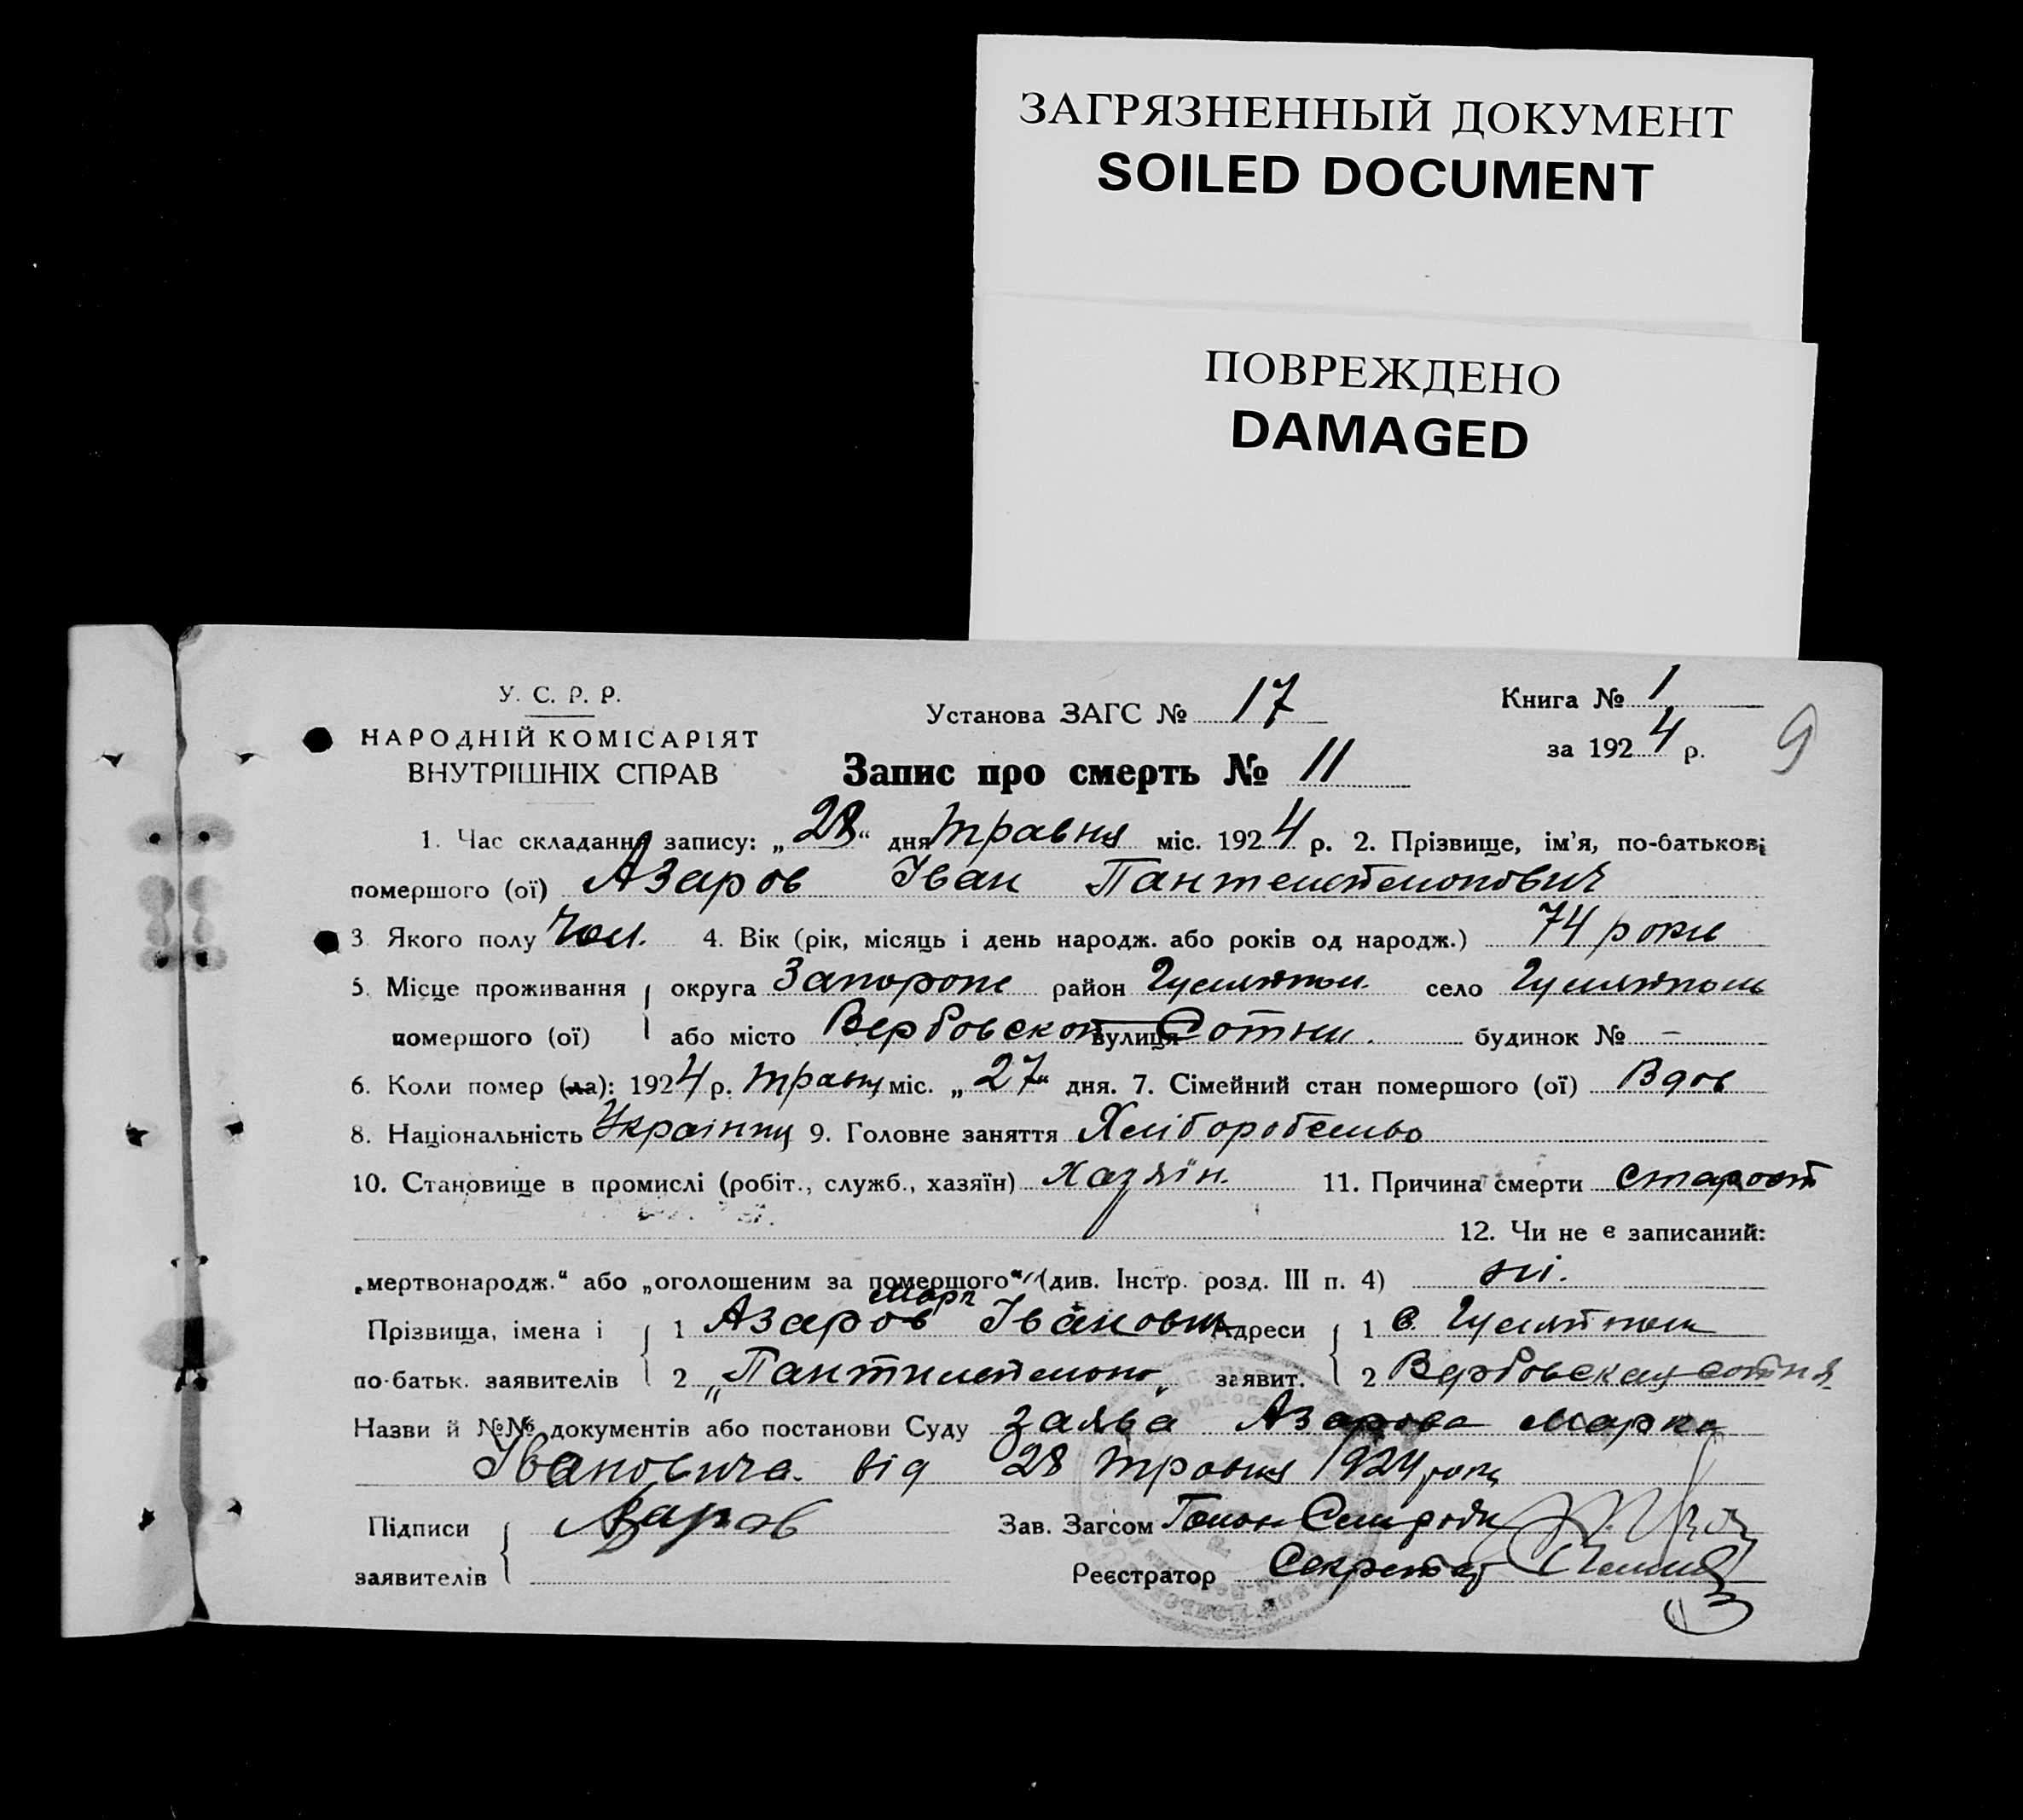 ЗАГРЯЗНЕННЫЙ ДОКУМЕНТ
SOILED DOCUMENT
ПОВРЕЖДЕНО
DAMAGED
У. С. Р. Р.
НАРОДНІЙ КОМІСАРІЯТ
ВНУТРІШНІХ СПРАВ
Установа ЗАГС № 17
Книга № 1
за 1924 р.
9
Запис про смерть № 11
1. Час складання запису: „28“ дня травня міс. 1924 р. 2. Прізвище, ім'я, по-батькові
помершого (ої) Азаров Іван Пантелеймонович
3 Якого полу Чол. 4. Вік (рік, місяць і день народж. або років од народж.) 74 років
5. Місце проживання помершого (ої) округа Запорож район Гуляйпол. село Гуляйполь
або місто Вербовской вулиця Сотни. будинок № –
6. Коли помер (ла): 1924 р. травня міс. „27“ дня. 7. Сімейний стан помершого (ої) Вдов
8. Національність Українец 9. Головне заняття Хліборобство
10. Становище в промислі (робіт., служб., хазяїн) хазяїн. 11. Причина смерти старост
12. Чи не є записаний:
„мертвонародж.“ або „оголошеним за помершого“ (див. Інстр. розд. III п. 4) ні.
Прізвища, імена і по-батьк. заявителів 1 Азаров Марк Іванович Адреси заявит. 1 с. Гуляйполь
2 „Пантилеймоно„ 2 Вербовская сотня
Назви й №№ документів або постанови Суду заява Азарова Марка
Івановича від 28 травня 1924 року
Підписи заявителів Азаров
Зав. Загсом Голов Сельради
Реєстратор Секретар